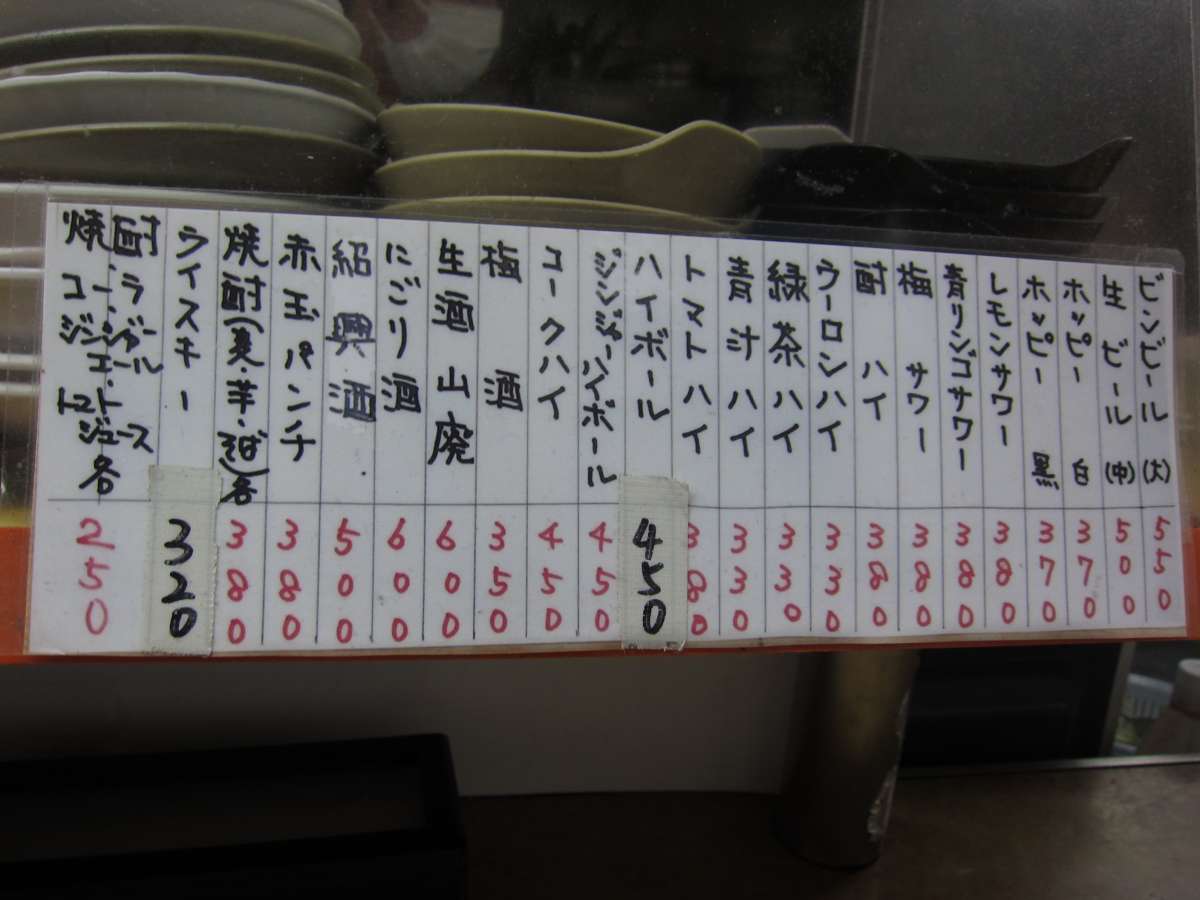 ビンビール(大) 550
生ビール(中) 500
ホッピー白 370
ホッピー黒 370
レモンサワー 380
青リンゴサワー 380
梅サワー 380
酎ハイ 380
ウーロンハイ 330
緑茶ハイ 330
青汁ハイ 330
トマトハイ 380
ハイボール 450
ジンジャーハイボール 450
コークハイ 450
梅酒 350
生酒山廃 600
にごり酒 600
紹興酒 500
赤玉パンチ 380
焼酎(麦・芋・そば)各 380
ウイスキー 320
酎
焼
コーラ
ジンジャーエール・
トマト・ジュース
各 250